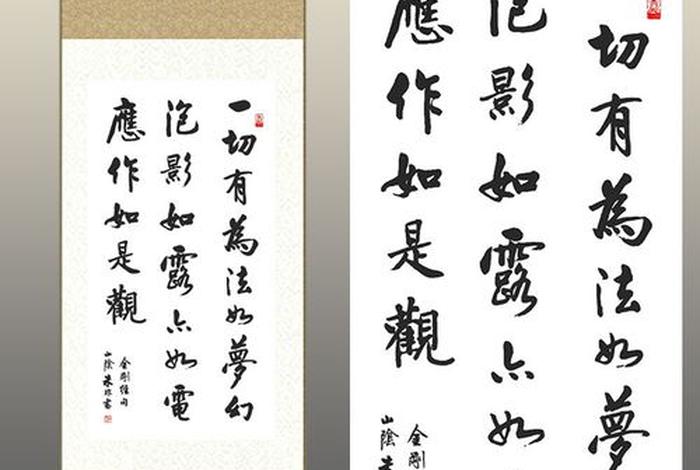 一切有為法如夢幻
泡影如露亦如電
應作如是觀
金剛經句
山陰朱書
切有為法如夢
泡影如露亦如
應作如是觀
金剛
山陰朱